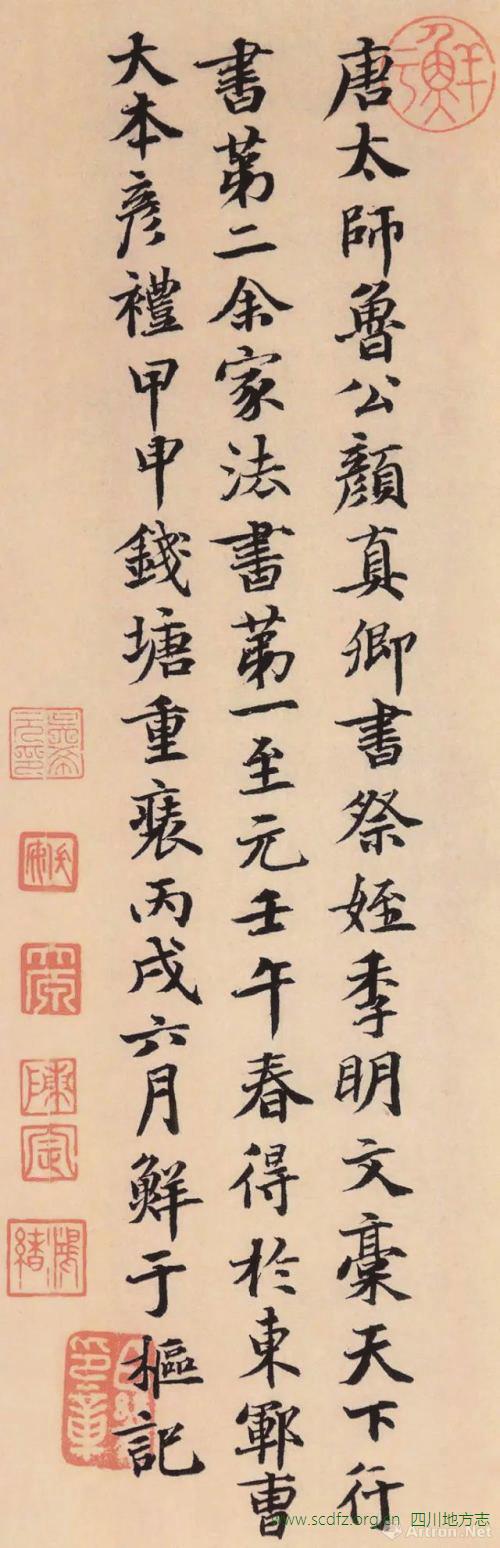 唐太師魯公顏真卿書祭姪季明文藁天下行
書苐二余家法書苐一至元壬午春得於東鄆曹
大本彥禮甲申錢塘重裝丙戌六月鮮于樞記
鮮于
www.scdfz.org.cn 四川地方志
Artron.Net